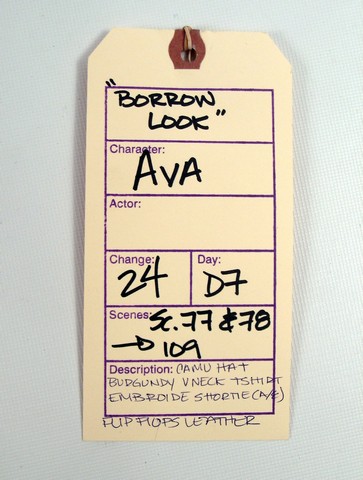 "BORROW
LOOK"
Character:
AVA
Actor:
Change: Day:
24 D7
Scenes: Sc. 77 & 78
→ 109
Description: CAMU HAT
BURGUNDY VNECK TSHIRT
EMBROIDE SHORTIE (A/E)
FLIP FLOPS LEATHER